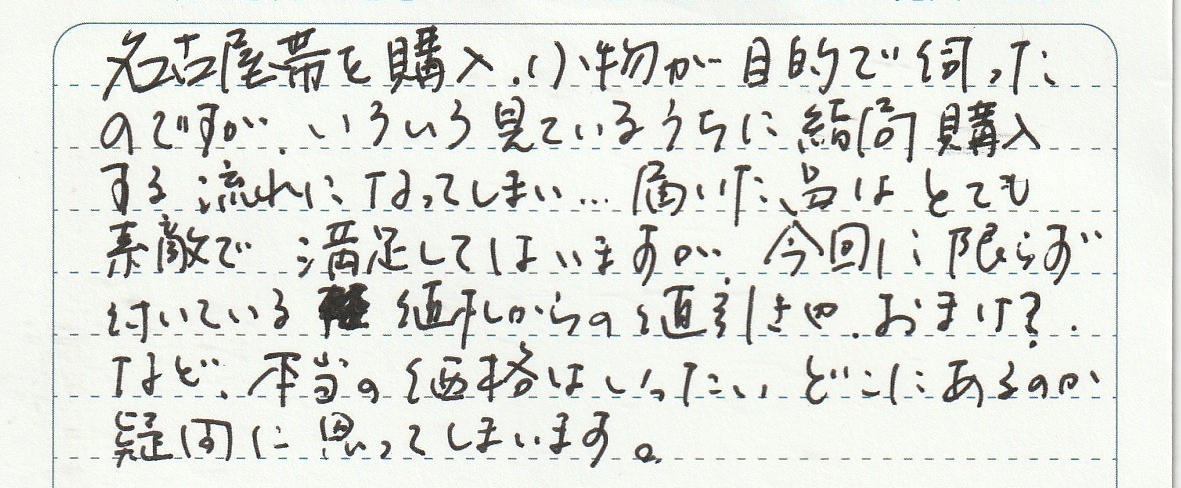 名古屋帯を購入、小物が目的で伺った
のですが、いろいろ見ているうちに結局購入
する流れになってしまい…届いた品はとても
素敵で 満足してはいますが、今回に限らず
付いている 値札からの値引きや、おまけ?、
など、本当の価格はいったい どこにあるのか
疑問に思ってしまいます。